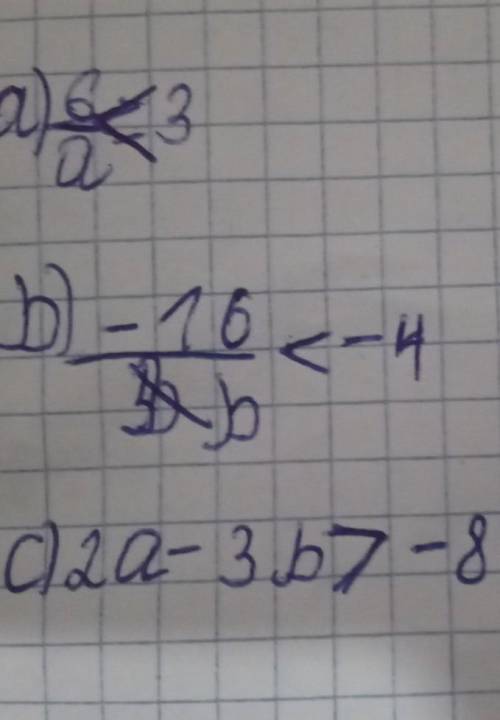 a) 6/a < 3
b) -16/b < -4
c) 2a - 3b > -8